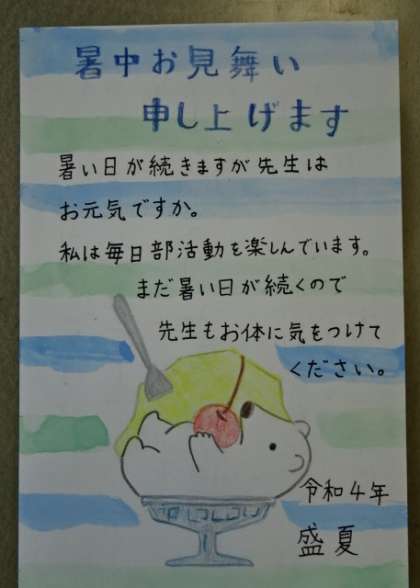 暑中お見舞い
申し上げます
暑い日が続きますが先生は
お元気ですか。
私は毎日部活動を楽しんでいます。
まだ暑い日が続くので
先生もお体に気をつけて
ください。
令和4年
盛夏